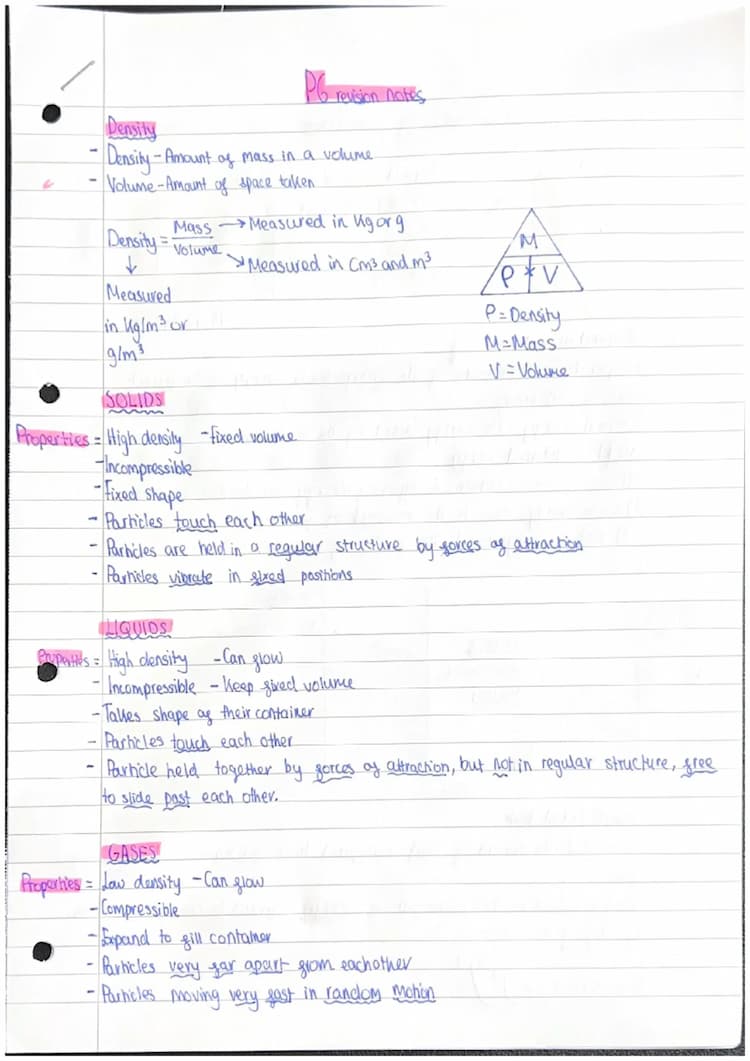 P6 revision notes
Density
- Density - Amount of mass in a volume
- Volume - Amount of space taken
Density = Mass → Measured in Kg or g
Volume ↘ Measured in Cm³ and m³
↓
Measured
in Kg/m³ or
g/m³
M
P × V
P = Density
M = Mass
V = Volume
SOLIDS
Properties = High density - fixed volume
- Incompressible
- Fixed shape
- Particles touch each other
- Particles are held in a regular structure by forces of attraction
- Particles vibrate in fixed positions
LIQUIDS
Properties = High density - Can flow
- Incompressible - Keep fixed volume
- Takes shape of their container
- Particles touch each other
- Particle held together by forces of attraction, but not in regular structure, free
to slide past each other.
GASES
Properties = Low density - Can flow
- Compressible
- Expand to fill container
- Particles very far apart from eachother
- Particles moving very fast in random motion